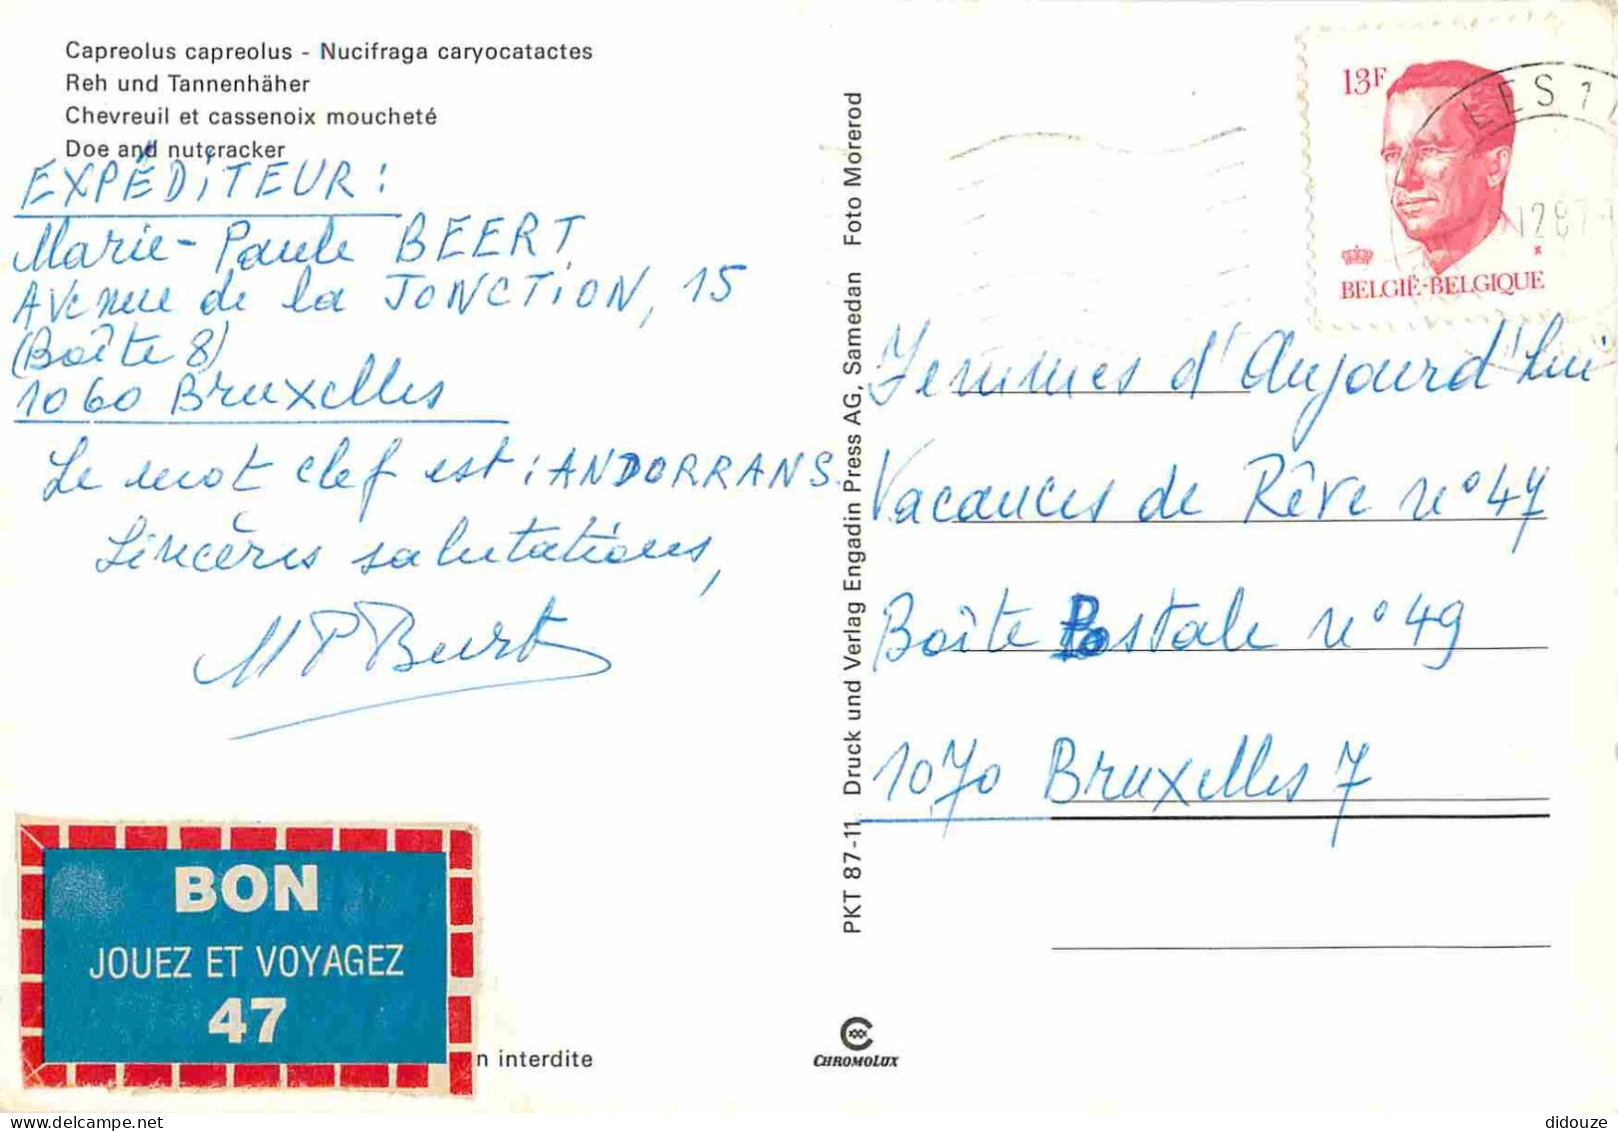 Capreolus capreolus - Nucifraga caryocatactes
Reh und Tannenhäher
Chevreuil et cassenoix moucheté
Doe and nutcracker
EXPÉDITEUR :
Marie-Paule BEERT
Avenue de la JONCTION, 15
(Boîte 8)
1060 Bruxelles
Le mot clef est : ANDORRANS.
Sincères salutations,
MP Beert
BON
JOUEZ ET VOYAGEZ
47
n interdite
PKT 87-11. Druck und Verlag Engadin Press AG, Samedan Foto Morerod
CHROMOLUX
13F
BELGIË-BELGIQUE
LES 1
1287
Femmes d'Aujourd'hui
Vacances de Rêve n° 47
Boîte Postale n° 49
1070 Bruxelles 7
didouze